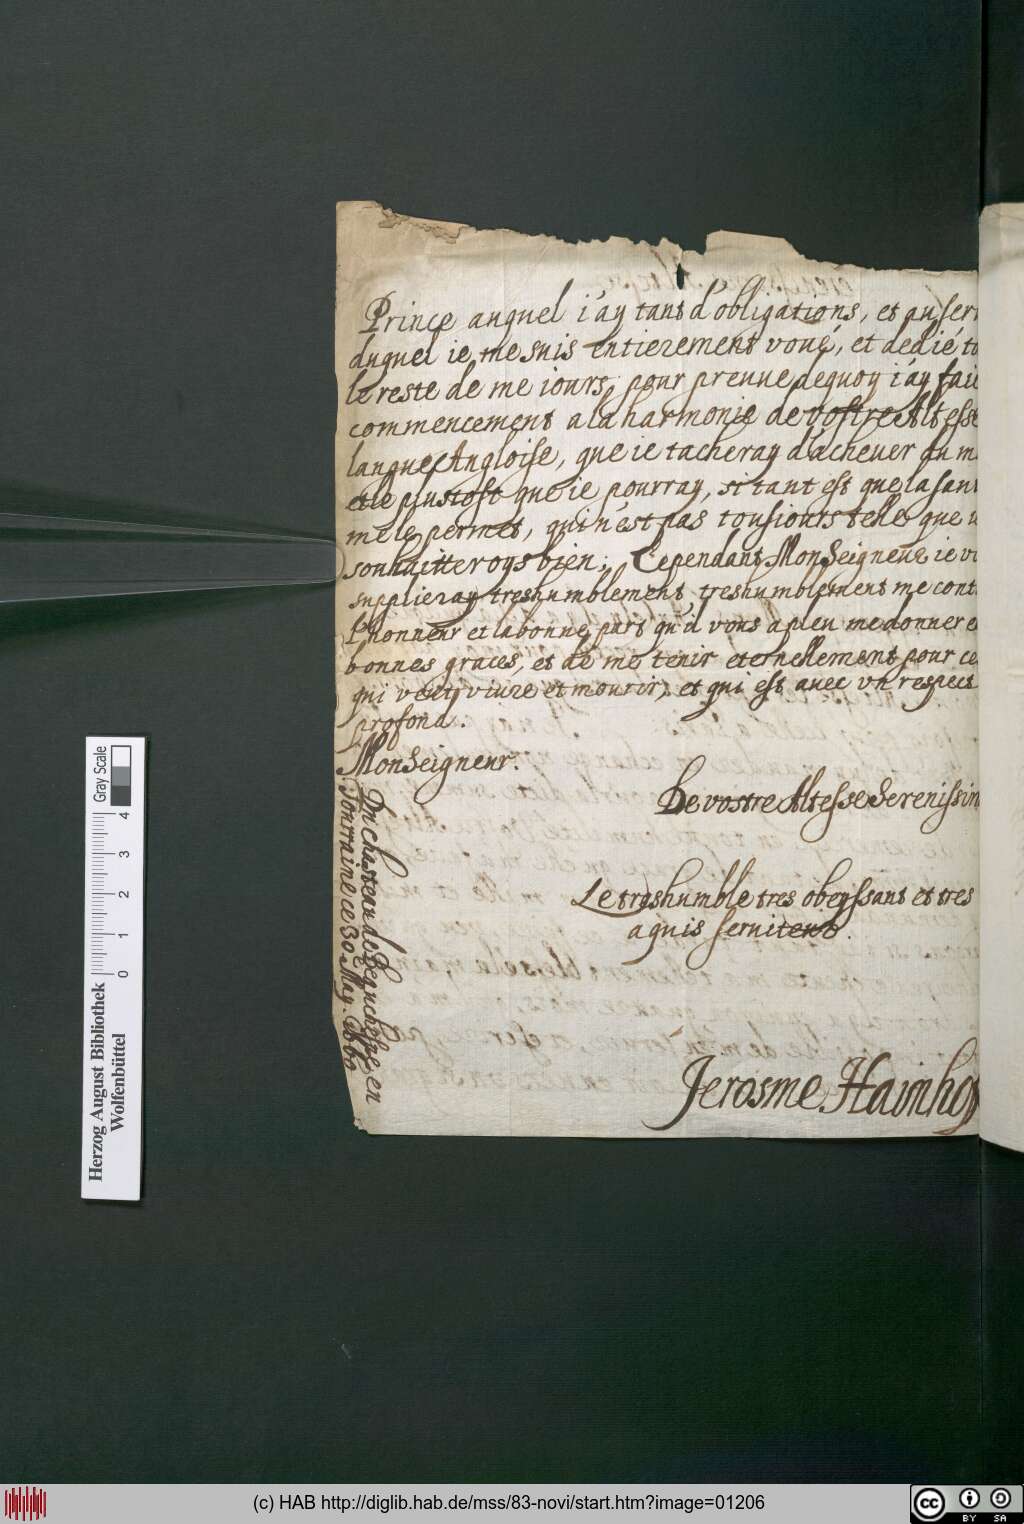 Prince auquel i'ay tant d'obligations, et au ser
duquel ie me suis entierement voué, et dedié to
le reste de me iours, pour preuue dequoy i'ay fai
commencement a la harmonie de vostre Altesse
langue Angloise, que ie tacheray d'acheuer du m
et le plustost que ie pourray, si tant est que la san
me le permet, qui n'est pas tousiours telle que
souhaitteroys bien; Cependant MonSeigneur ie
supplieray treshumblement treshumblement me cont
l'honneur et la bonne part qu'il vous a pleu me donner e
bonnes graces, et de me tenir eternellement pour ce
qui veut viure et mourir, et qui est auec vn respect
profond.
MonSeigneur.
De vostre Altesse Serenissim
Le treshumble tres obeyssant et tres
aquis seruiteur.
Jerosme Hainho
Du chasteau de en
Tourraine ce 30 May. 1660
Herzog August Bibliothek
Wolfenbüttel
0 1 2 3 4
Gray Scale
(c) HAB http://diglib.hab.de/mss/83-novi/start.htm?image=01206
cc BY SA